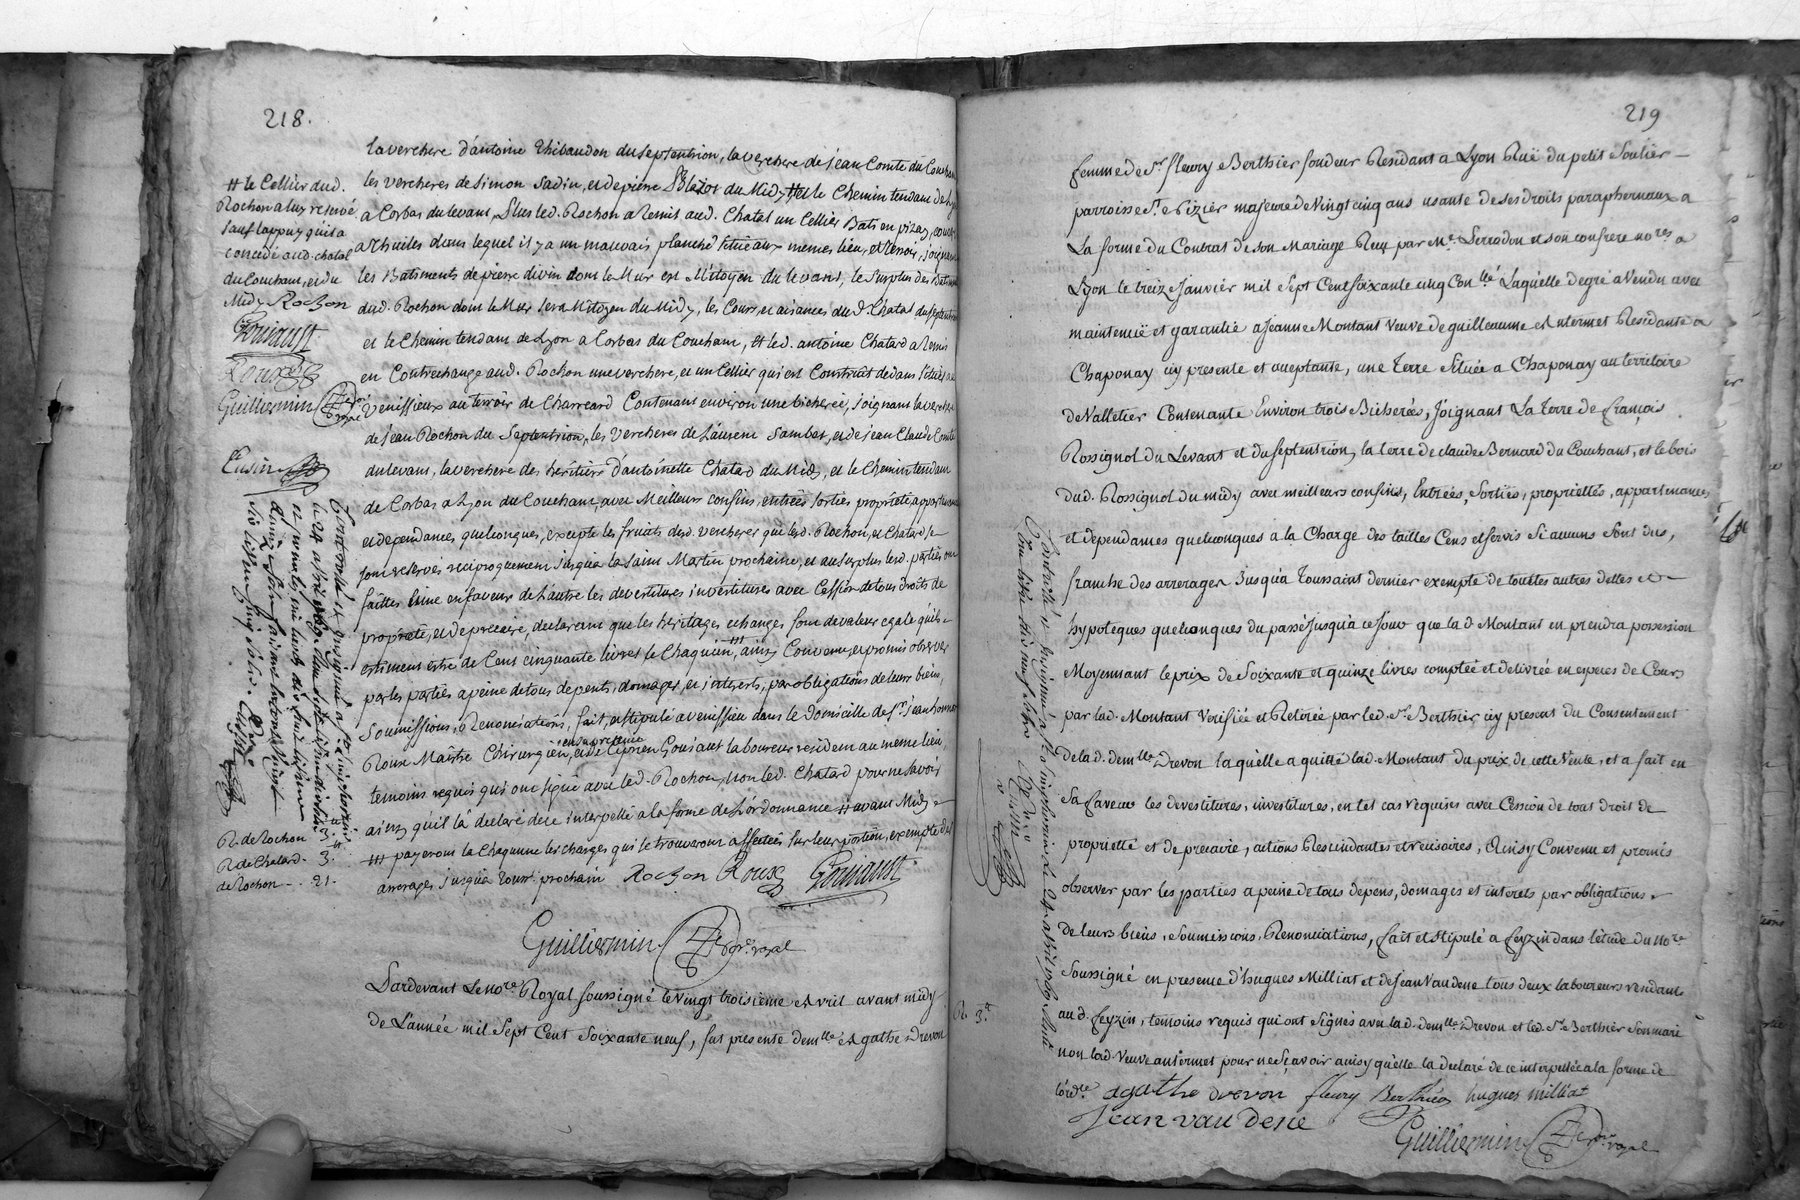 218.
la verchere d'antoine Thibaudon du septentrion, la verchere de jean Comte du Couchant
les vercheres de Simon Sadin, et de pierre Blezot du Midy # et le Chemin tendant de Lyon
a Corbas du levant, Plus led. Rochon a Remis aud. Chatal un Cellier Bati en pizay, couvert
a thuiles dans lequel il y a un mauvais planché situé aux memes lieu, et Terroir, joignant
les Batiments de pierre divin dont le Mur est Mitoyen du levant, le Surplus des Batiments
dud. Rochon dont le Mur sera Mitoyen du Midy, les Cours, et aisances dud. Chatal du septentrion
et le Chemin tendant de Lyon a Corbas du Couchant, Et led. antoine Chatard a Remis
en Contrechange aud. Rochon une verchere, et un Cellier qui est Construit dedans situés a
Venissieux au terroir de Charreard Contenant environ une bicherée, joignant la verchere
de jean Rochon du Septentrion, les Vercheres de Laurent Sambet, et de jean Claude Comte
du levant, la verchere des heritiers d'antoinette Chatard du Midy, et le Chemin tendant
de Corbas a Lyon du Couchant, avec Meilleurs confins, entrées sorties propriété appartenances
et dependances quelconques, excepté les fruits desd. vercheres que led. Rochon, et Chatard se
sont reservés reciproquement jusqu'a la saint Martin prochaine, et au surplus led. parties ont
faittes l'une en faveur de l'autre les devestitures investitures avec Cession de tous droits de
propriété, et de precaire, declarant que les heritages echangés sont de valeur egale qu'ils
estiment estre de Cent cinquante livres le Chaqu'un, ### ainsy Convenu, et promis observer
par les parties a peine de tous depents, domages, et interests, par obligations de leurs biens,
Soumissions, Renonciations, fait, et stipulé a venissieu dans le Domicille de Sr. jean honnoré
Roux Maistre Chirurgien, en sa presence et de Ciprien Gouiaut laboureur resident au meme lieu,
temoins requis qui ont signé avec led. Rochon, non led. Chatard pour ne savoir
ainsy qu'il l'a declaré de ce interpellé a la forme de L'ordonnance ## avant Midy
### payeront la Chaqu'une les charges qui se trouveront affectées sur leur portion, exempte des
arrerages jusqu'a Touss.t prochain Rochon Roux Gouiaust
Guillermin Nore. royal
Pardevant Le nore. Royal soussigné le vingt troisieme Avril avant midy
de L'année mil Sept Cent Soixante neuf, fut presente demlle Agathe Drevon
# le Cellier dud.
Rochon a luy reservé
sauf l'appuy qu'il a
concedé aud. chatal
du Couchant, et du
Midy Rochon
Gouiaust
Roux
Guillermin Nore
Cusin
R. de Rochon 3.
R. de Chatard. 3.
de Rochon - - 21.
219
femme de Sr. fleury Berthier fondeur Residant a Lyon Ruë du petit Soulier
parroisse St. Nizier majeure de Vingt cinq ans usante de ses droits paraphernaux a
La forme du Contrat de son Mariage Reçu par Me. Serrodon et son confrere nores a
Lyon le treize Janvier mil Sept Cent soixante cinq Conllé Laquelle de gré a Vendu avec
maintenüe et garantie a Jeanne Montant Veuve de guilleaume Antermet Residante a
Chaponay icy presente et aceptante, une Terre Située a Chaponay au territoire
de Valletier Contenante Environ trois Bicherées, Joignant La terre de françois
Rossignol du Levant et du septentrion, la terre de claude Bernard du Couchant, et le bois
dud. Rossignol du midy avec meilleurs confins, Entrées, Sorties, proprietés, appartenances
et dependances quelconques a la Charge des tailles Cens et servis Si aucuns Sont dus,
franche des arrerages Jusqu'a Toussaint dernier exempte de touttes autres dettes et
hypoteques quelconques du passé Jusqu'a ce jour que la d Montant en prendra possession
Moyennant le prix de Soixante et quinze livres comptée et delivrée en especes de Cours
par lad. Montant Verifiée et Retirée par led. Sr. Berthier icy present du Consentement
De la d. demlle Drevon laquelle a quitté lad. Montant du prix de cette Vente, et a fait en
Sa faveur les devestitures, investitures, en tel cas requises avec Cession de tout droit de
proprietté et de precaire, actions Rescindantes et rescisoires, Ainsy Convenu et promis
observer par les parties a peine de tous depens, domages et interets par obligations
de leurs biens, Soumissions, Renonciations, fait et stipulé a feyzin dans l'etude du nore
Soussigné en presence d'hugues Milliat et de Jean Vaudene tous deux laboureurs residants
aud. feyzin, temoins requis qui ont Signés avec lad. demlle Drevon et led. Sr. Berthier Son mari
non lad. Veuve antermet pour ne Sçavoir ainsy qu'elle la declaré de ce interpellée a la forme de
l'ordce agathe drevon fleury Berthier hugues milliat
Jean vaudene
Guillermin Nore royal
R. 3.#